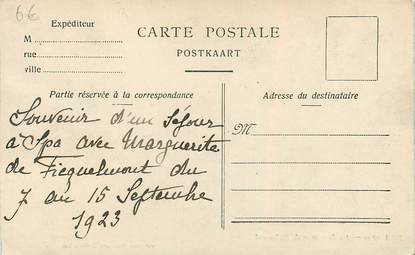 6€
Expéditeur
M
rue
ville
CARTE POSTALE
POSTKAART
Partie réservée à la correspondance
Adresse du destinataire
Souvenir d'un Séjour
à Spa avec Marguerite
de Ficquelmont du
7 au 15 Septembre
1923
M